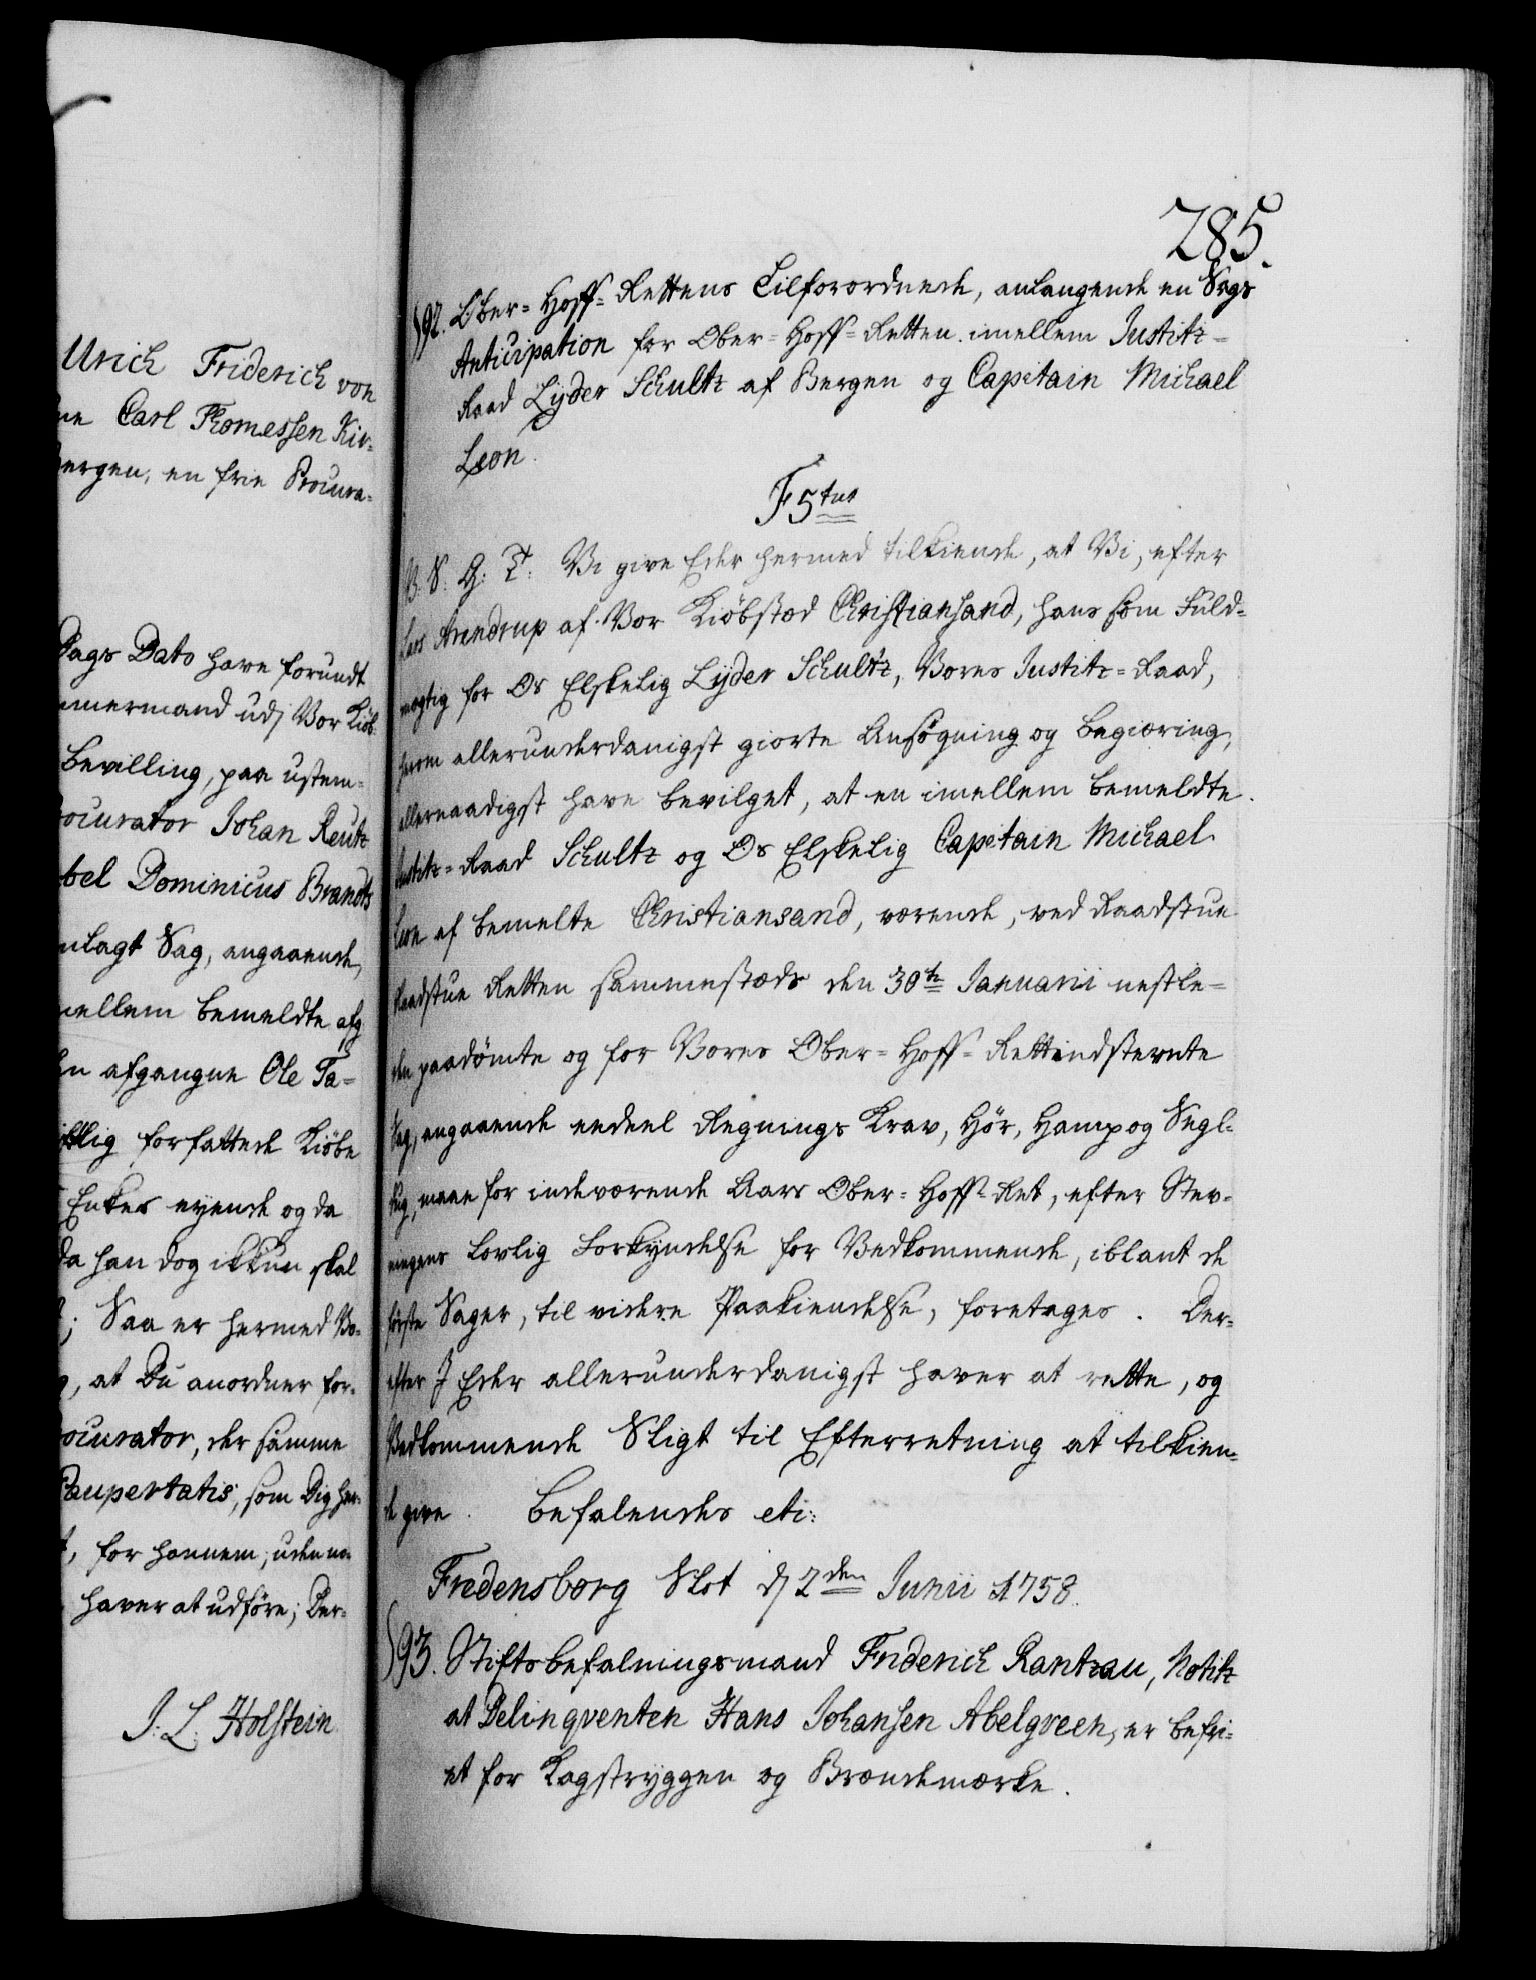 Urich Friderich von
ne Carl Thomessen Kir-
bergen, en frie Procura-
Dags Dato have forundt
mmermand udj Vor Kiöb-
bevilling, paa ustem-
ocurator Johan Reutz
bel Dominicus Brandts
nlagt Sag, angaaende,
mellem bemeldte afg
en afgangne Ole Ta-
forfattede Kiöbe
Enkes eyende og da
da han dog ikkun skal
; Saa er hermed Vo-
, at Du anordner for-
ocurator, der samme
Paupertatis, som Dig her-
, for hannem, uden no-
haver at udföre; Der-
J. L. Holstein
285.
592. Ober-Hoff-Rettens Tilforordnede, anlangende en Sags
Anticipation for Ober-Hoff-Retten imellem Justitz-
Raad Lyder Schultz af Bergen og Capitain Michael
Leon.
F 5tus
V. S. G. T. Vi give Eder hermed tilkiende, at Vi, efter
Lars Arendrup af Vor Kiöbstæd Christiansand, hans som Fuld-
mægtig for Os Elskelig Lyder Schultz, Vores Justitz-Raad,
herom allerunderdanigst giorte Ansögning og begiæring,
allernaadigst have bevilget, at en imellem bemeldte
Justitz-Raad Schultz og Os Elskelig Capitain Michael
Leon af bemelte Christiansand, værende, ved Raadstue
Raadstue Retten sammestæds den 30te Januarii nestle-
den paadömte og for Vores Ober-Hoff-Ret indstevnte
Sag, angaaende endeel Regnings Krav, Hör, Hamp og Segl-
dug, maae for indeværende Aars Ober-Hoff-Ret, efter Stev-
ningens lovlig Forkyndelse for Vedkommende, iblant de
förste Sager, til videre Paakiendelse, foretages. Der-
efter J Eder allerunderdanigst haver at rette, og
Vedkommende Sligt til Efterretning at tilkien-
de give. Befalendes etc:
Fredensborg Slot d 2den Junii 1758.
593. Stiftsbefalningsmand Friderich Rantzau, Notitz
at Delinqventen Hans Johansen Abelgreen, er befri-
et for Kagstryggen og Brændemærke.